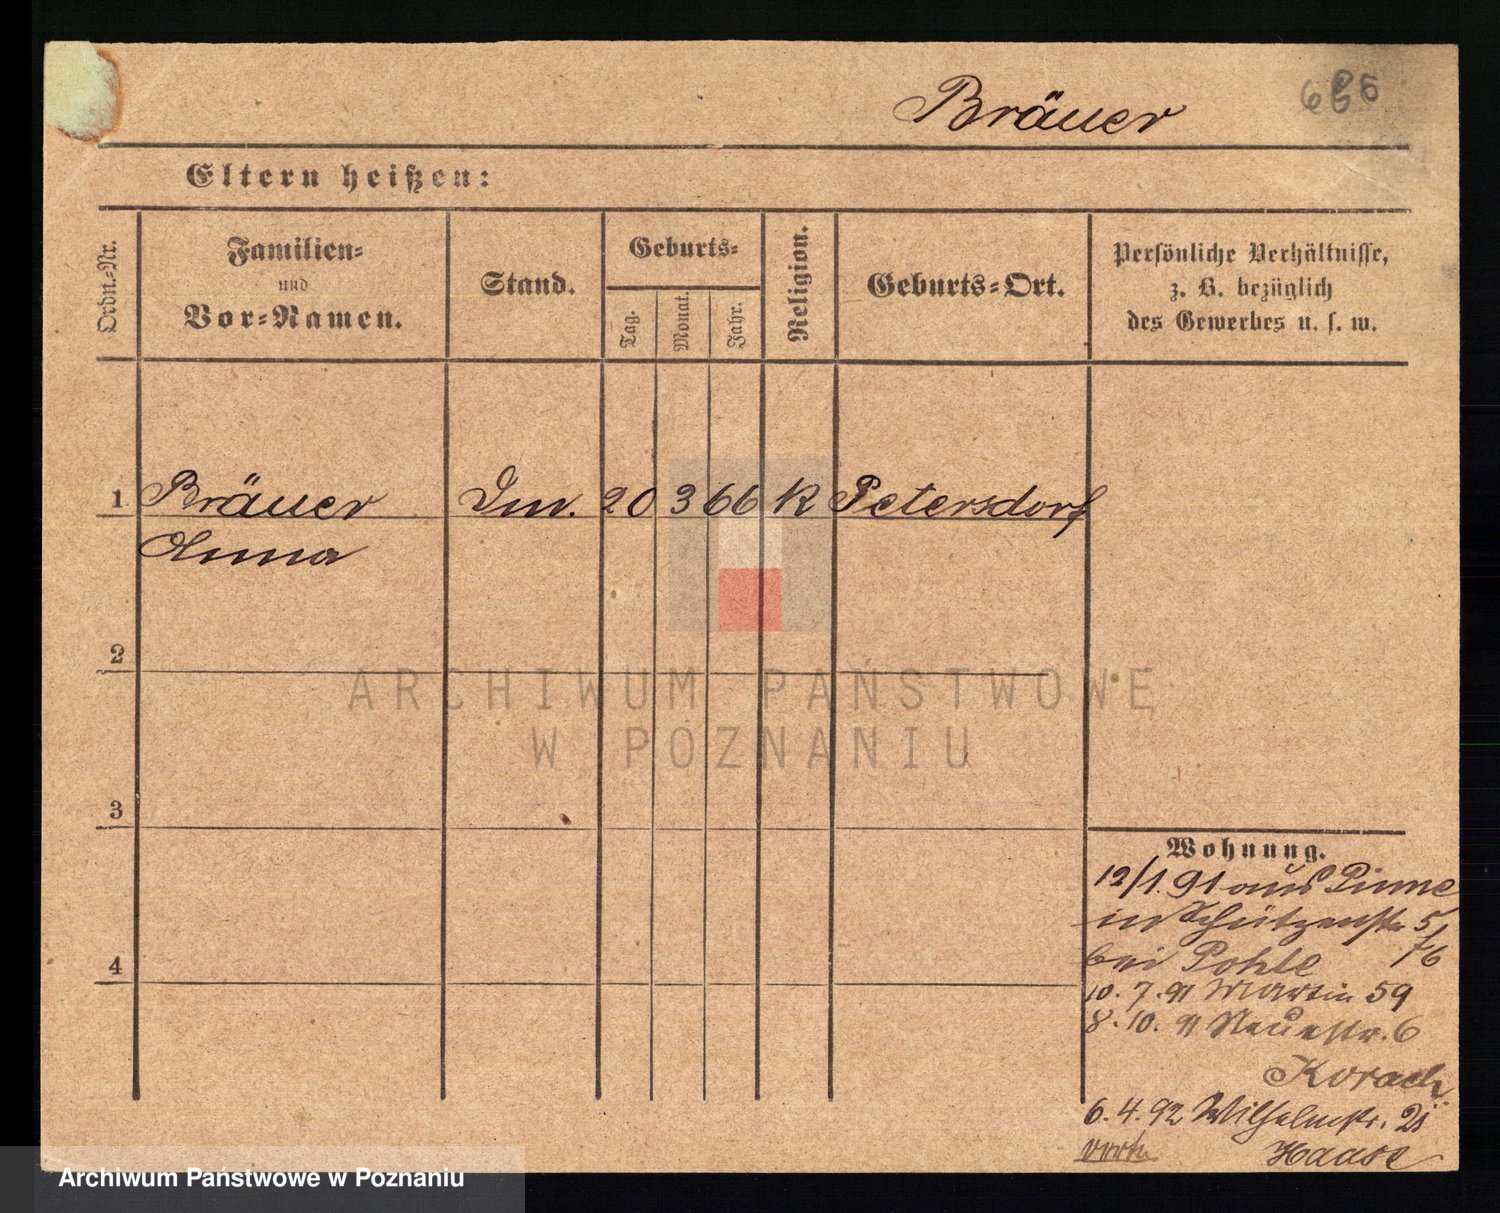 Bräuer
Eltern heißen:
Ordn.-Nr.
Familien-
und
Vor-Namen.
Stand.
Geburts-
Tag.
Monat.
Jahr.
Religion.
Geburts-Ort.
Persönliche Verhältnisse,
z. B. bezüglich
des Gewerbes u. s. w.
1 Bräuer 20 3 66 K Petersdorf
Anna
2
ARCHIWUM PAŃSTWOWE
W POZNANIU
3
4
Wohnung.
12/1 91 aus Pinne
in Schützenstr 5/
bei Pohle 76
10. 7. 91 Martin 59
8. 10. 91 Neuestr. 6
Korach
6. 4. 92 Wilhelmstr. 21
Haase
Archiwum Państwowe w Poznaniu